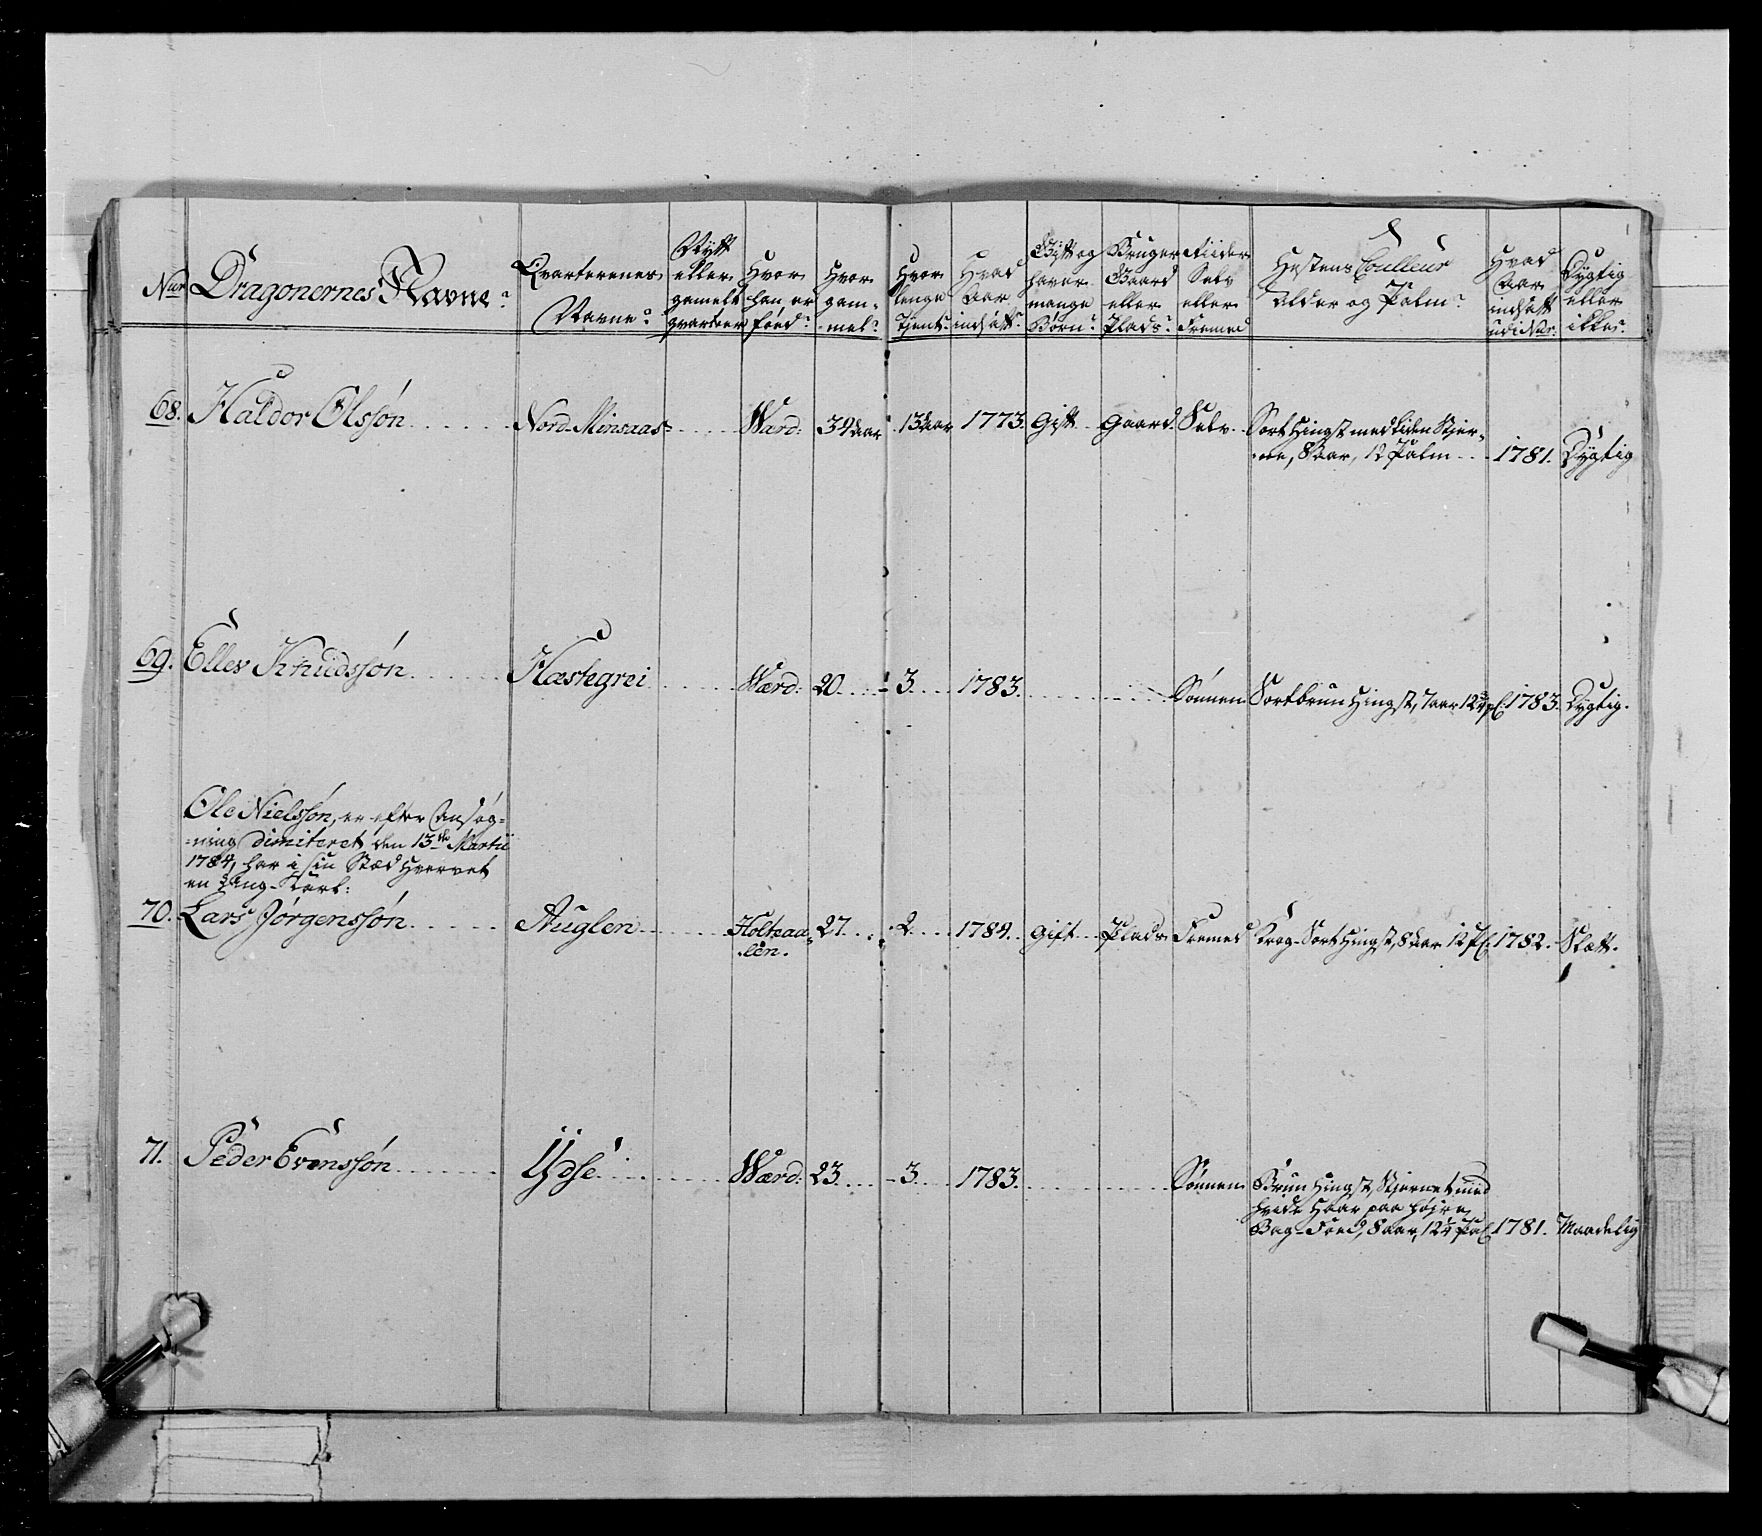 Nur
Dragonernes Navne
Qvarterenes
Navne
Nytt
eller
gamelt
qvarteer
Hvor
han er
föed
Hvor
gam-
mel
Hvor
lenge
Tjent
Hvad
Aar
indsatt
Gift og
haver
mange
Börn
Bruger
Gaard
eller
Plads
Riider
Selv
eller
Fremed
Hestens Coulleur
Alder og Palm
Hvad
Aar
indsatt
udi Nur:
Dygtig
eller
ikke
68. Haldor Olssøn Nord-Minsaas Værd: 39 Aar 13 Aar 1773. Gift Gaard. Selv. Sort Hingst med liden Stjer-
ne, 8 Aar, 12 Palm 1781. Dygtig
69. Ellev Knudssøn Hæstegrei Værd: 20. 3. 1783. Sønnen Sortbrun Hingst, 7 aar 12¾ pl: 1783. Dygtig.
Ole Nielssøn, er efter Ansøg-
ning dimiteret den 13de Martii
1784, har i sin Stæd Hvervet
en Lang-Karl:
70. Lars Jørgenssøn Auglen Holtaa-
len. 27. 2. 1784. Gift Plads Fremed Brog-Sort Hingst, 8 Aar 12 pl: 1782. Slætt.
71. Peder Evenssøn Ÿdse Værd: 23. 3. 1783. Sønnen Brun Hingst, Stjernet med
hvide Haar paa højre
Bag-Foed, 8 aar, 12¼ Pal: 1781. Maadelig